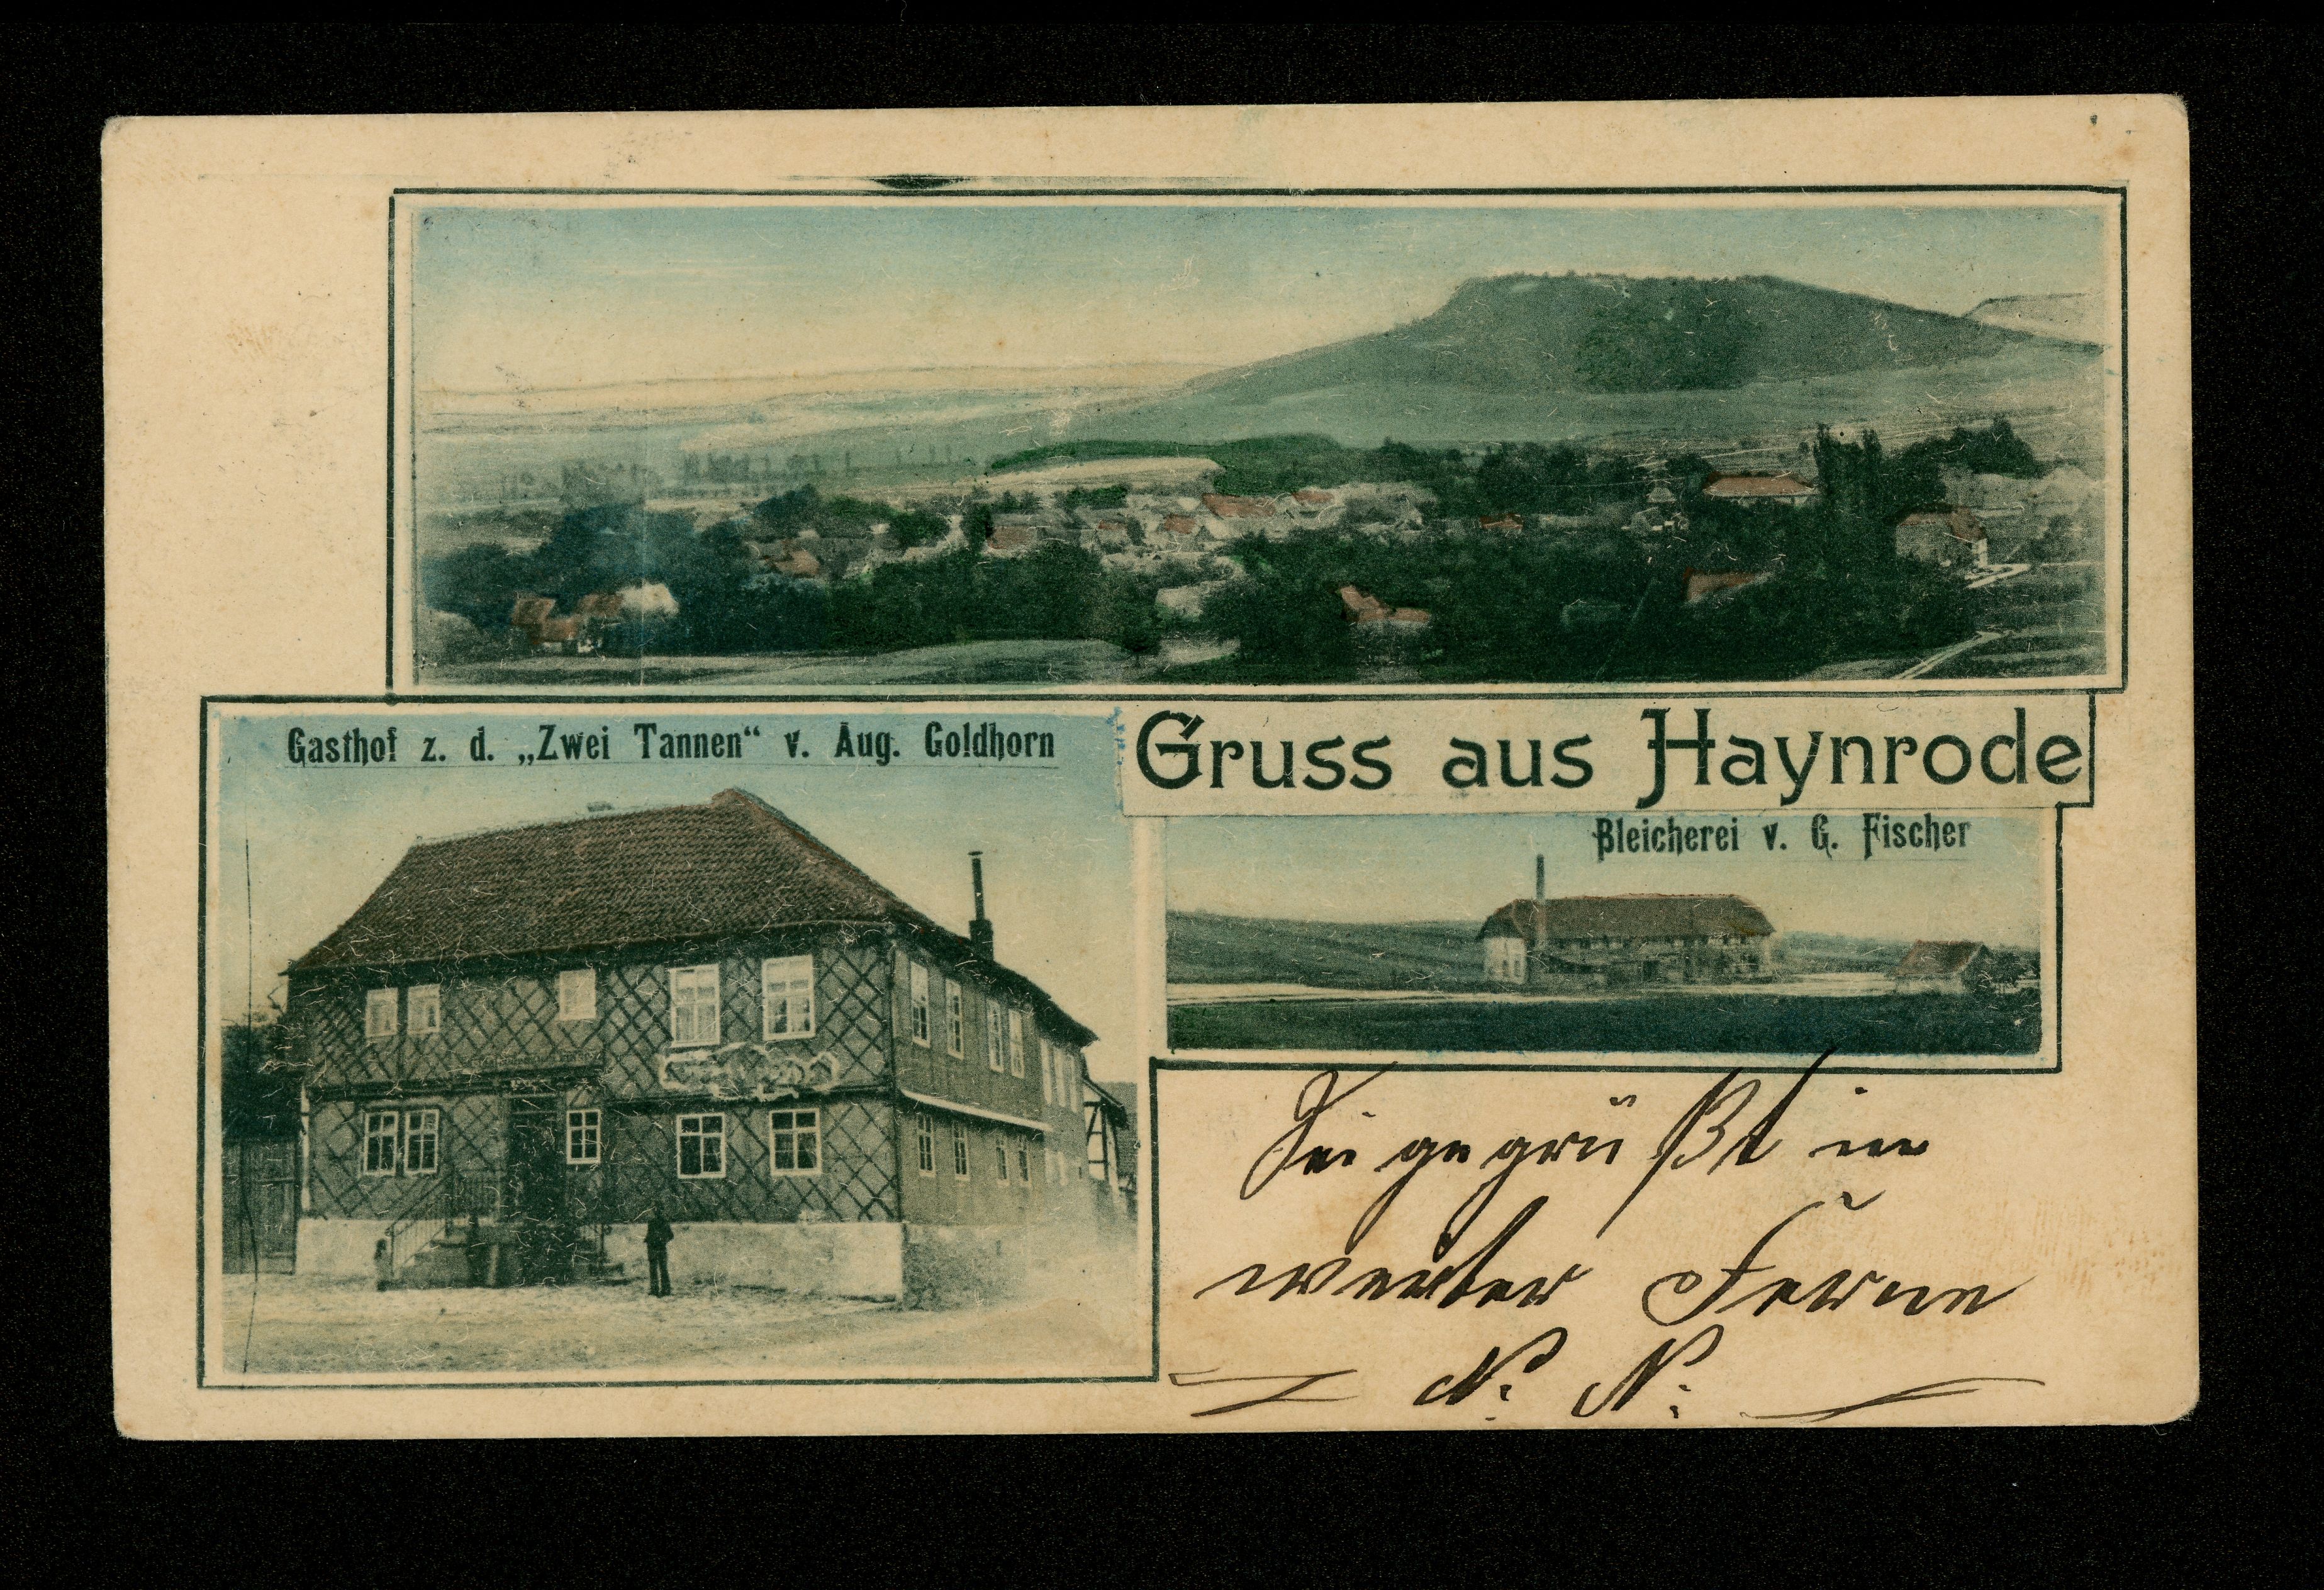 Gasthof z. d. „Zwei Tannen“ v. Aug. Goldhorn
Gruss aus Haynrode
Bleicherei v. G. Fischer
Sei gegrüßt in
weiter Ferne
N. N.